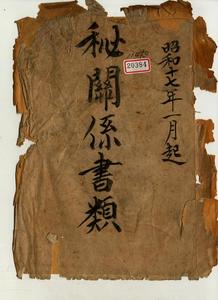 昭和十七年一月起
秘關係書類
20384